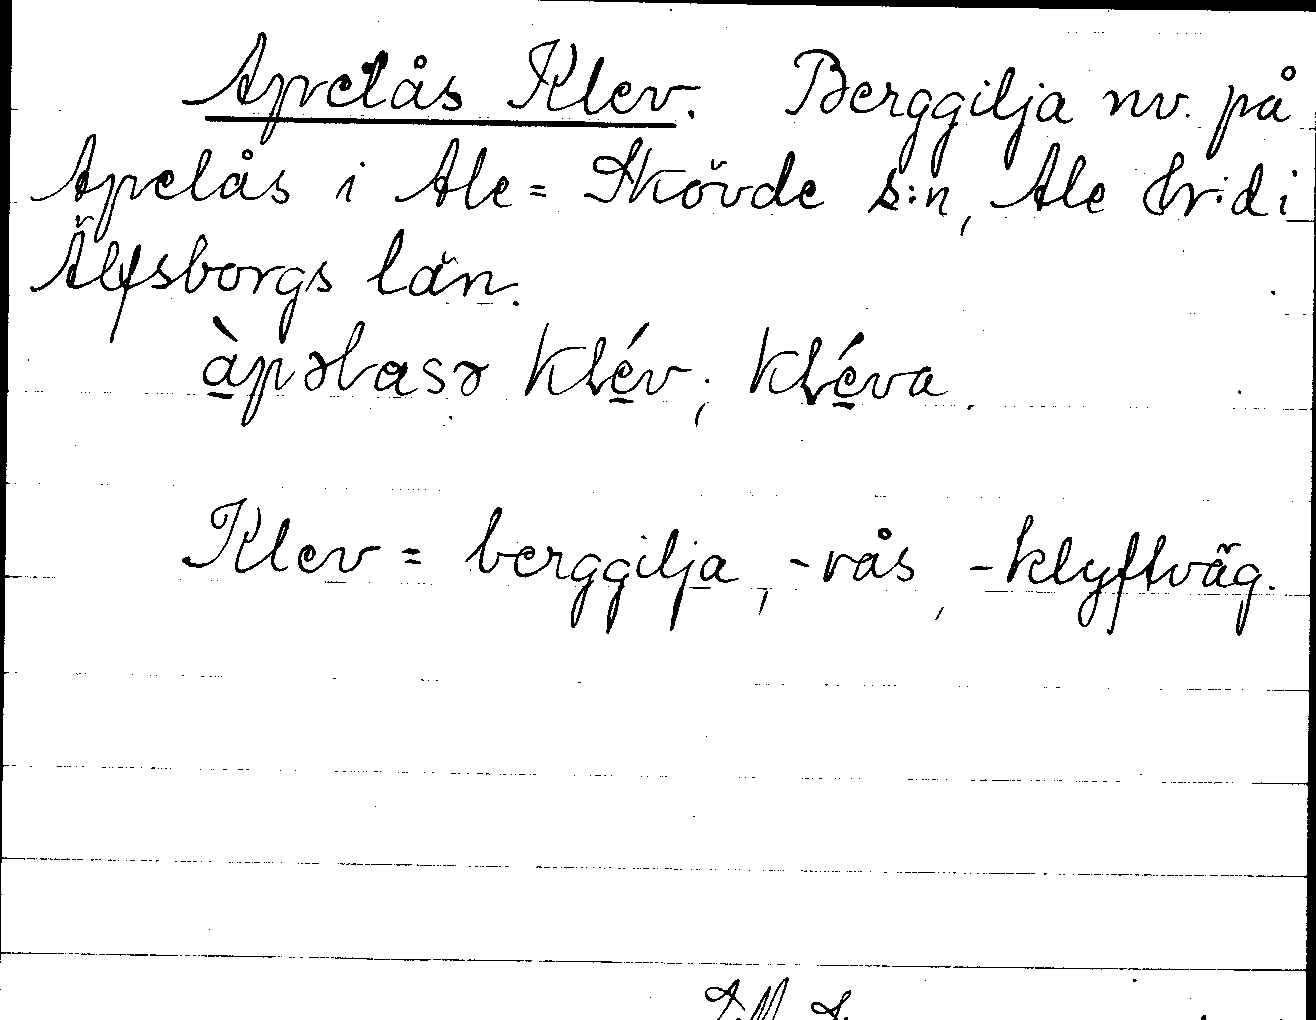 Apelås Klev. Berggilja nv. på
Apelås i Ale=Skövde s:n, Ale hr:d i
Älfsborgs län.
àpəlasə klév; kléva.
Klev = berggilja, -rås, -klyftväg.